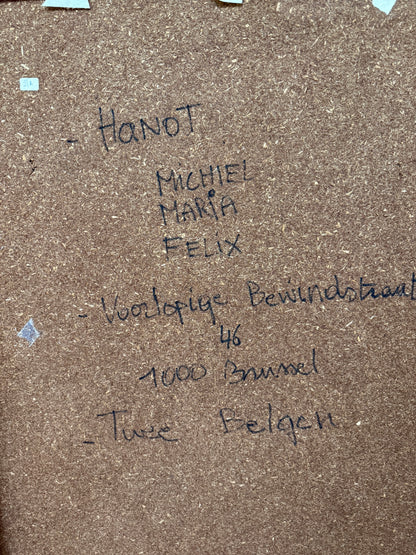 - HANOT
MICHIEL
MARIA
FELIX
- Voorlopige Bewindstraat
46
1000 Brussel
- Twee Belgen